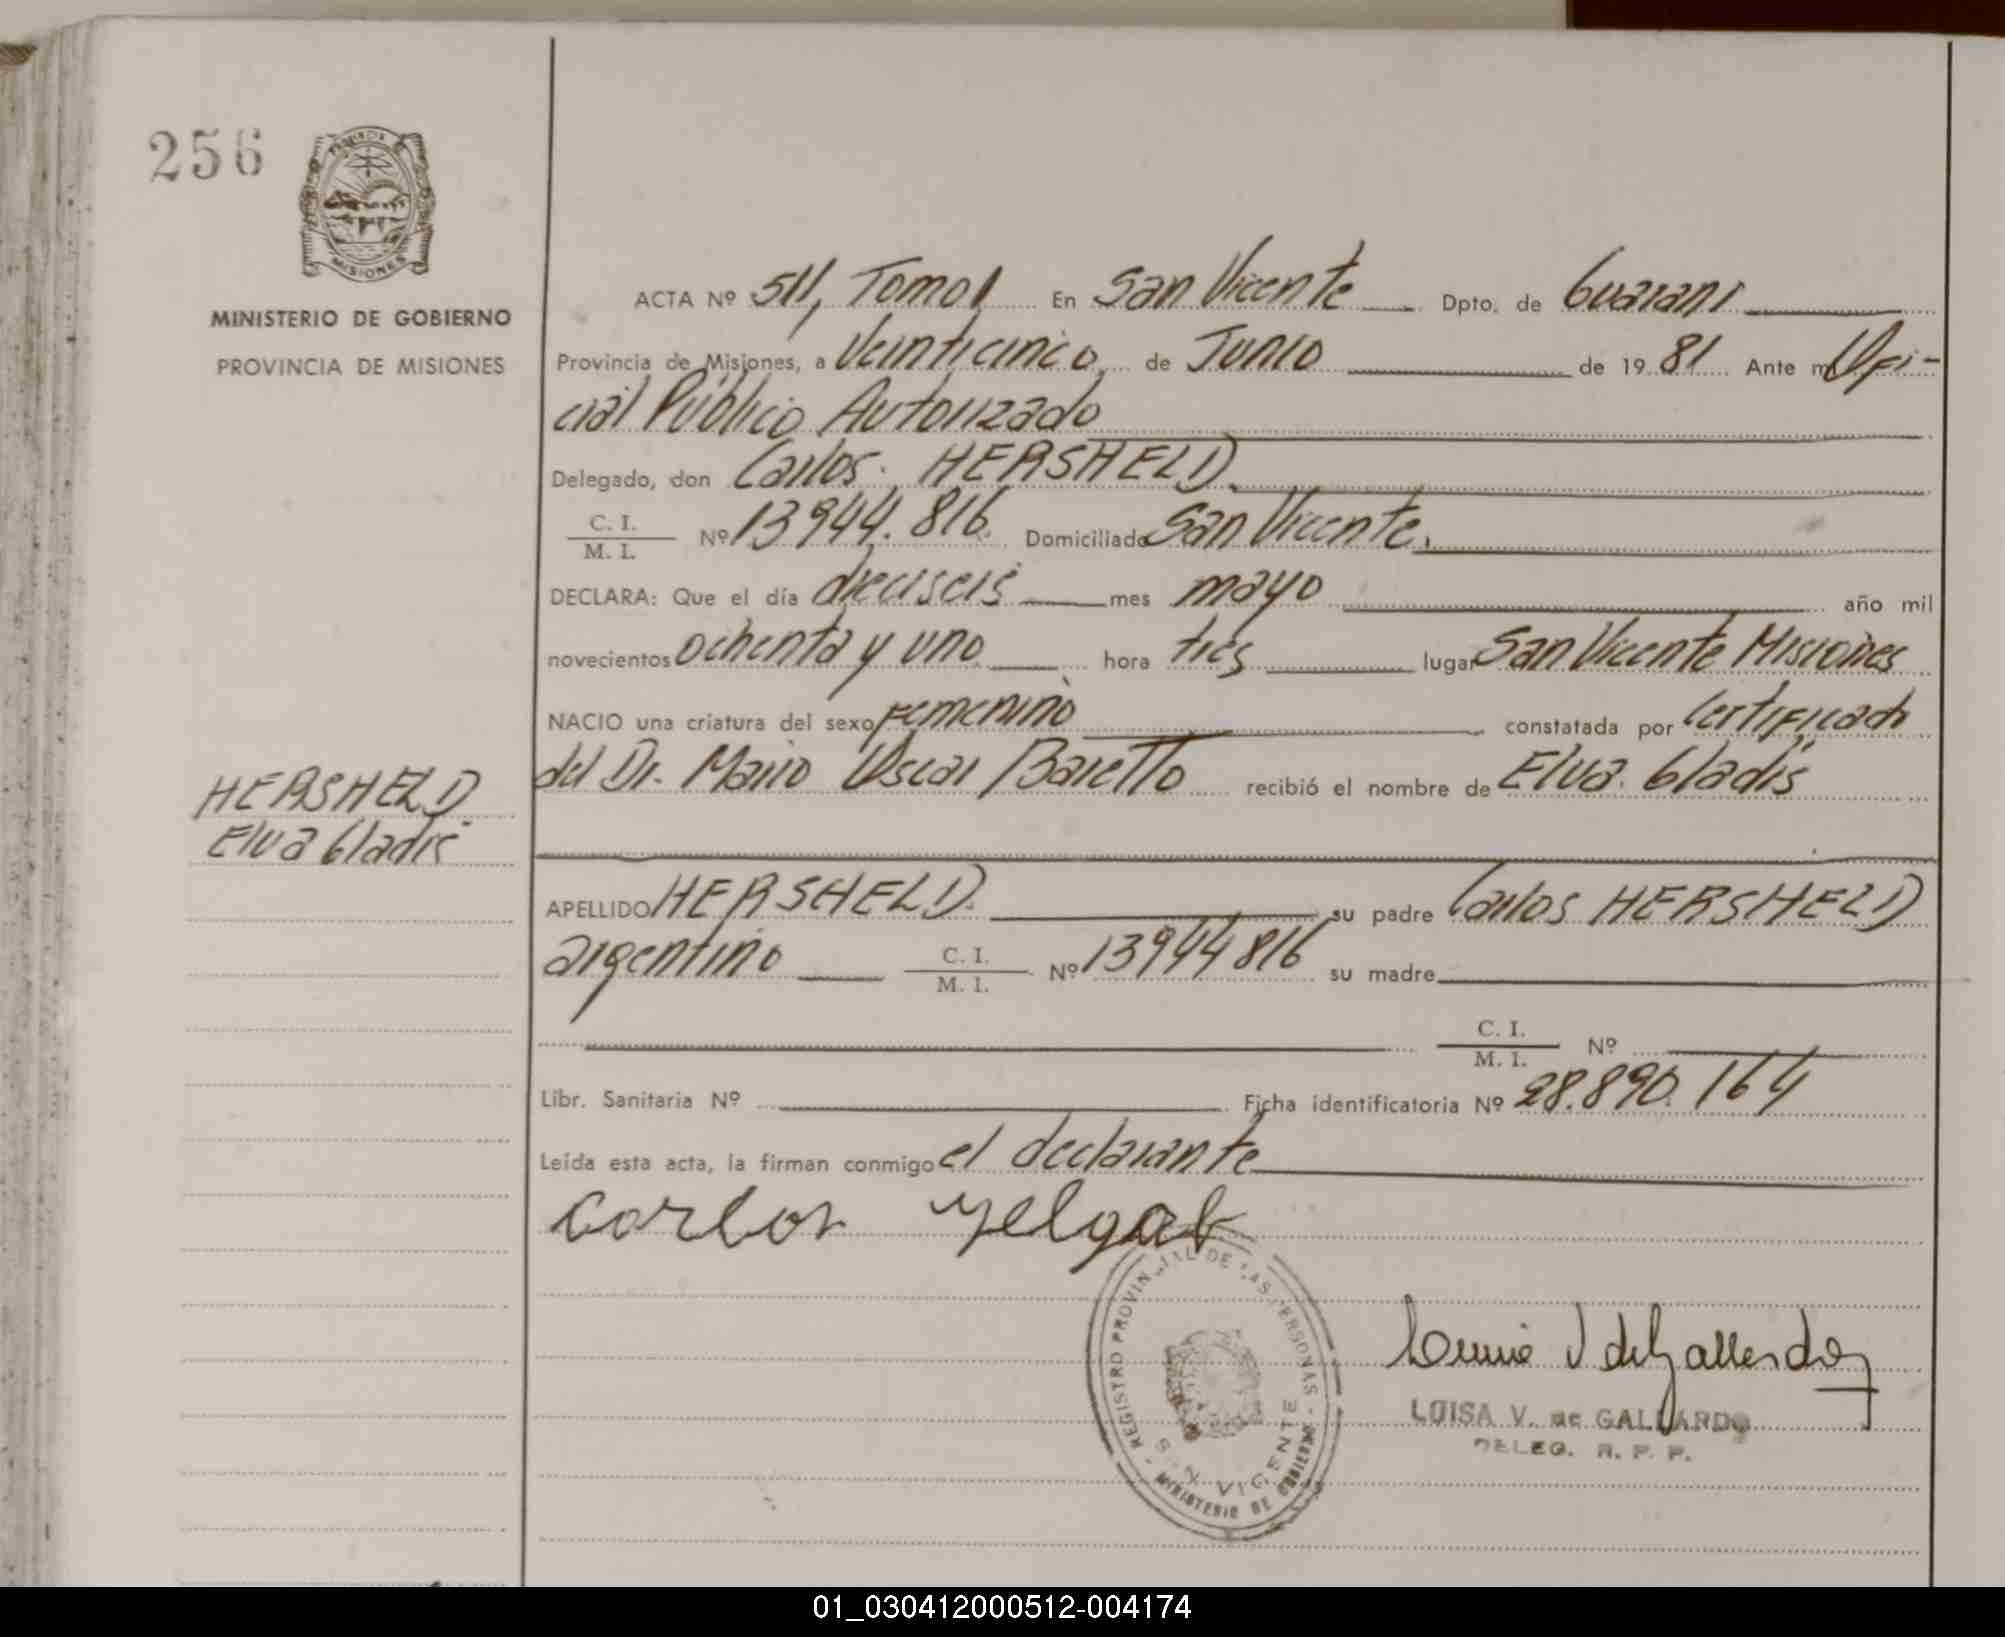 256
PROVINCIA
MISIONES
MINISTERIO DE GOBIERNO
PROVINCIA DE MISIONES
ACTA Nº 511, Tomo I En San Vicente Dpto. de Guarani
Provincia de Misiones, a Veinticinco de Junio de 19 81 Ante mi Ofi-
cial Público Autorizado
Delegado, don Carlos HERSHELD
C. I.
M. I. Nº 13944.816 Domiciliado San Vicente.
DECLARA: Que el día dieciseis mes mayo año mil
novecientos ochenta y uno hora tres lugar San Vicente Misiones
NACIO una criatura del sexo femenino constatada por Certificado
del Dr. Mario Oscar Baretto recibió el nombre de Elva Gladis
HERSHELD
Elva Gladis
APELLIDO HERSHELD su padre Carlos HERSHELD
argentino C. I.
M. I. Nº 13944816 su madre
C. I.
M. I. Nº
Libr. Sanitaria Nº Ficha identificatoria Nº 28.890.164
Leída esta acta, la firman conmigo el declarante
Carlos
REGISTRO PROVINCIAL DE LAS PERSONAS - MINISTERIO DE GOBIERNO -
SAN VICENTE
LUISA V. DE GALLARDO
DELEG. R. P. P.
01_030412000512-004174